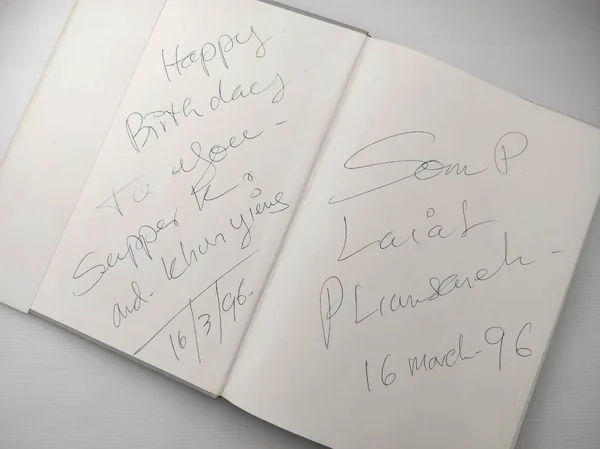 Happy
Birthday
To you -
Supper K.
and. Khun ying
16/3/96-
Som P.
Laiat
16 March-96